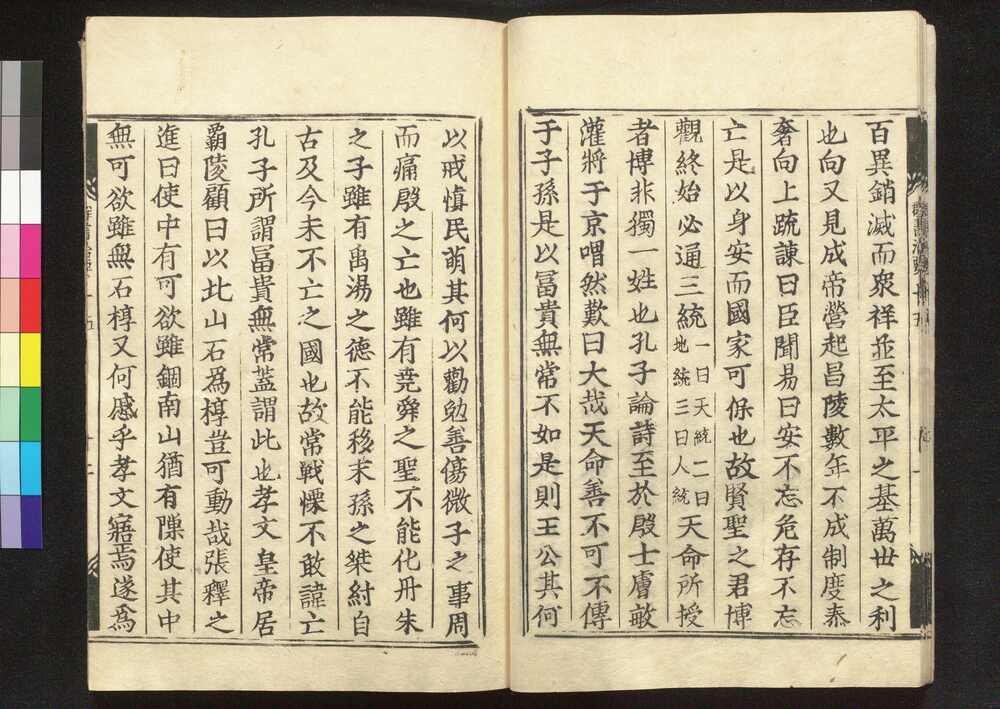 百異銷滅而衆祥並至太平之基萬世之利
也向又見成帝營起昌陵數年不成制度泰
奢向上疏諫曰臣聞易曰安不忘危存不忘
亡是以身安而國家可保也故賢聖之君博
觀終始必通三統一曰天統二曰地統三曰人統天命所授
者博非獨一姓也孔子論詩至於殷士膚敏
灌將于京喟然歎曰大哉天命善不可不傳
于子孫是以冨貴無常不如是則王公其何
以戒慎民萌其何以勸勉善傷微子之事周
而痛殷之亡也雖有堯舜之聖不能化丹朱
之子雖有禹湯之德不能移末孫之桀紂自
古及今未不亡之國也故常戰慄不敢諱亡
孔子所謂冨貴無常蓋謂此也孝文皇帝居
霸陵顧曰以此山石爲椁豈可動哉張釋之
進曰使中有可欲雖錮南山猶有隙使其中
無可欲雖無石椁又何慼乎孝文寤焉遂爲